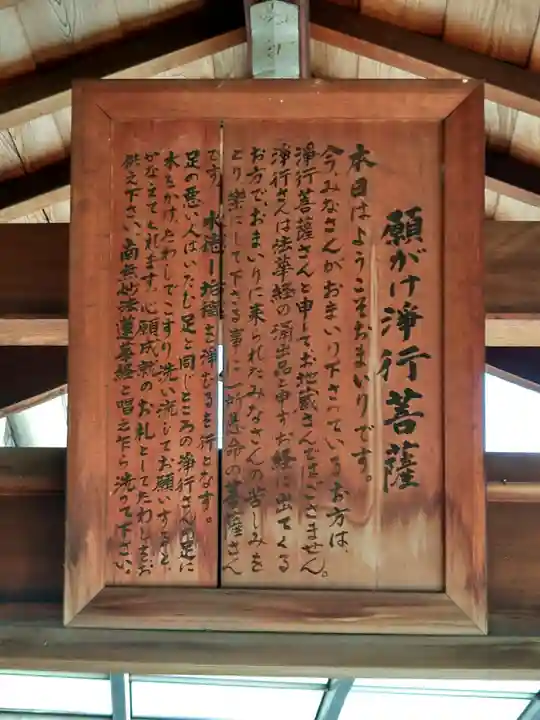 願がけ浄行菩薩
本日はようこそおまいりです。
今みなさんがおまいり下さっているお方は、
浄行菩薩さんと申してお地蔵さんではござさません。
浄行さんは法華経の涌出品と申すお経に出てくる
お方でおまいりに来られたみなさんの苦しみを
とり楽にして下さる事に一所懸命の菩薩さん
です。水徳 垢穢を浄むるを行となす。
足の悪い人はいたむ足と同じところの浄行さんの足に
水をかけ、たわしでこすり洗い流してお願いすると、
かなえてくれます。心願成就のお礼としてたわしをお
供え下さい。南無妙法蓮華経と唱え乍ら洗って下さい。